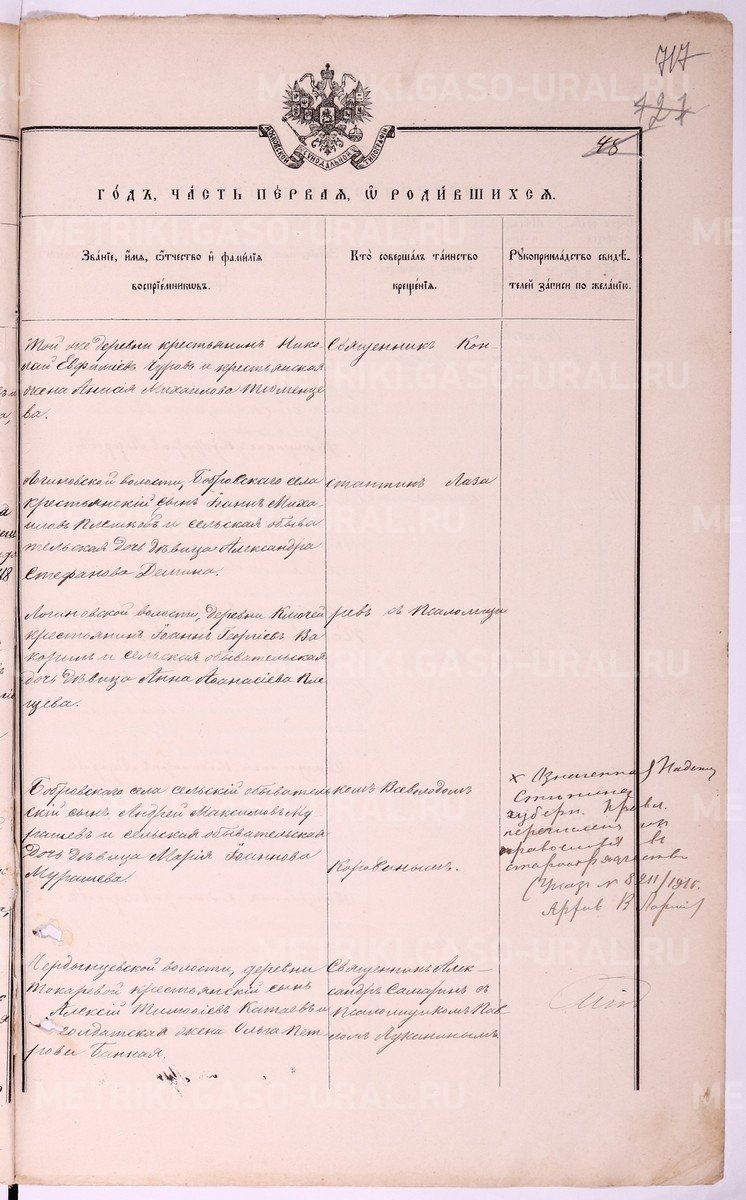 717
727
48
МОСКОВСКОЙ СѴНОДАЛЬНОЙ ТИПОГРАФІИ
ГО́ДЪ, ЧА́СТЬ ПЕ́РВАЯ, Ѽ РОДИ́ВШИХСЯ.
Зва́нїе, и҆́мя, ѻ҆́тчество и҆ фами́лїя
воспрїе́мникѡвъ.
Кто̀ соверша́лъ та́инство
креще́нїя.
Рꙋкоприкла́дство свидѣ́-
телей за́писи по жела́нїю.
Той же деревни крестьянинъ Нико-
лай Евфиміевъ Чуровъ и крестьянская
жена Анисія Михаилова Тюменце-
ва.
Священникъ Кон-
Логиновской волости, Бобровскаго села
крестьянскій сынъ Іоаннъ Миха-
иловъ и сельская обыва-
тельская дочь дѣвица Александра
Стефанова Демина.
стантинъ Лаза
Логиновской волости, деревни Ключей
крестьянинъ Іоаннъ Георгіевъ Ва
и сельская обывательская
дочь дѣвица Анна Аѳанасіева Пле
щева.
ревъ съ Псаломщи
Бобровскаго села сельскій обыватель
скій сынъ Андрей Максимовъ Му
рашевъ и сельская обывательская
дочь дѣвица Марія Іоаннова
Мурашева.
комъ Всеволодомъ
Коровинымъ.
х Означенная Надежда
губерн. Правл.
перечислена из
православия в
старообрядчество
(Указ № 8211/1915г.
Чердынцевской волости, деревни
Токаревой крестьянскій сынъ
Алексій Тимоѳіевъ Катаевъ и
солдатская жена Ольга Пет
рова Банная.
Священникъ Алек-
сандръ Самаринъ съ
Псаломщикомъ Пав
ломъ Лукинымъ.
METRIKI.GASO-URAL.RU